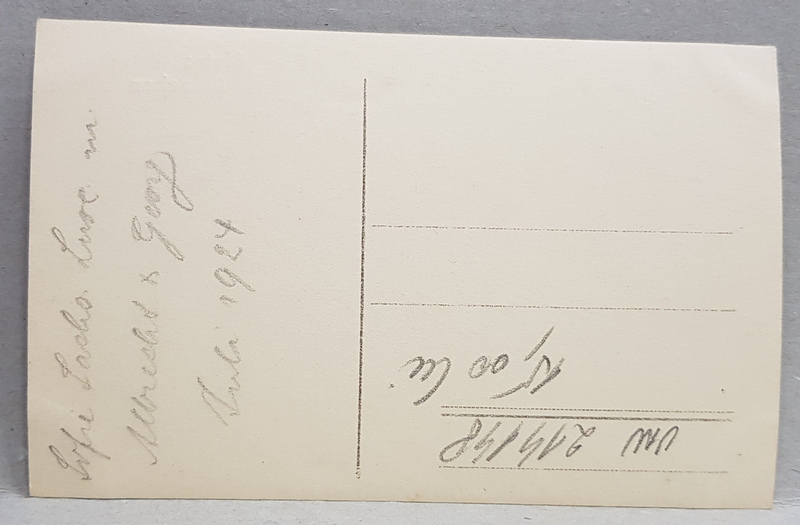 Sofie Sachs. Luise m.
Albrecht & Georg
Juli 1924
15,00 lei